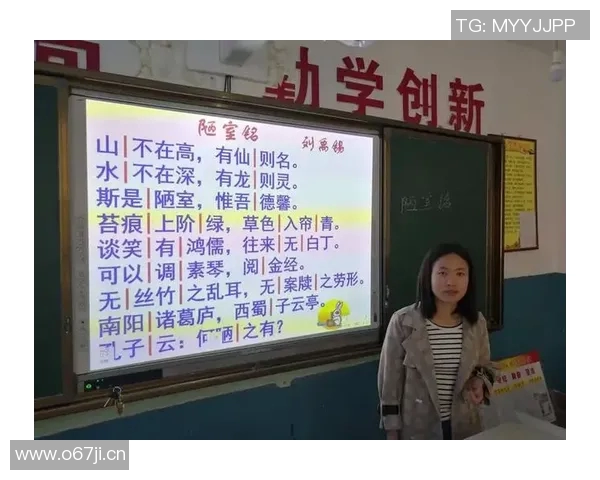 TG: MYYJJPP
勤学创新
陋室铭 刘禹锡
山|不在高，有仙|则名。
水|不在深，有龙|则灵。
斯是|陋室，惟吾|德馨。
苔痕|上阶|绿，草色|入帘|青。
谈笑|有|鸿儒，往来|无|白丁。
可以|调|素琴，阅|金经。
无|丝竹|之乱耳，无|案牍|之劳形。
南阳|诸葛庐，西蜀|子云亭。
孔子|云：何陋|之有？
陋室铭
www.o67ji.cn